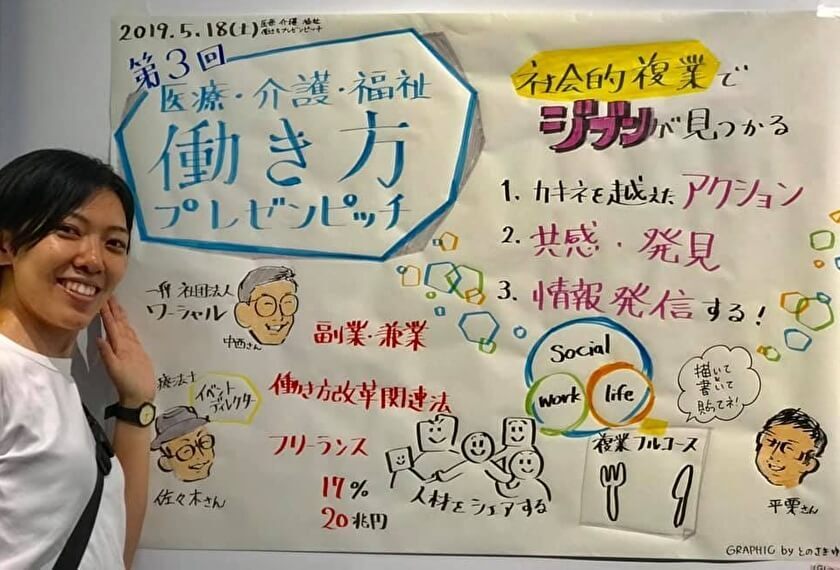 2019.5.18(土)
医療 介護 福祉
働き方プレゼンピッチ
第3回
医療・介護・福祉
働き方
プレゼンピッチ
社会的複業で
ジブンが見つかる
1. カキネを越えたアクション
2. 共感・発見
3. 情報発信する!
一般社団法人
ワーシャル
中西さん
副業・兼業
療法士
イベント
ディレクター
佐々木さん
働き方改革関連法
フリーランス
17%
20兆円
人材をシェアする
social
work
life
複業フルコース
描いて
書いて
貼ってネ!
平栗さん
GRAPHIC by とのさきゆ